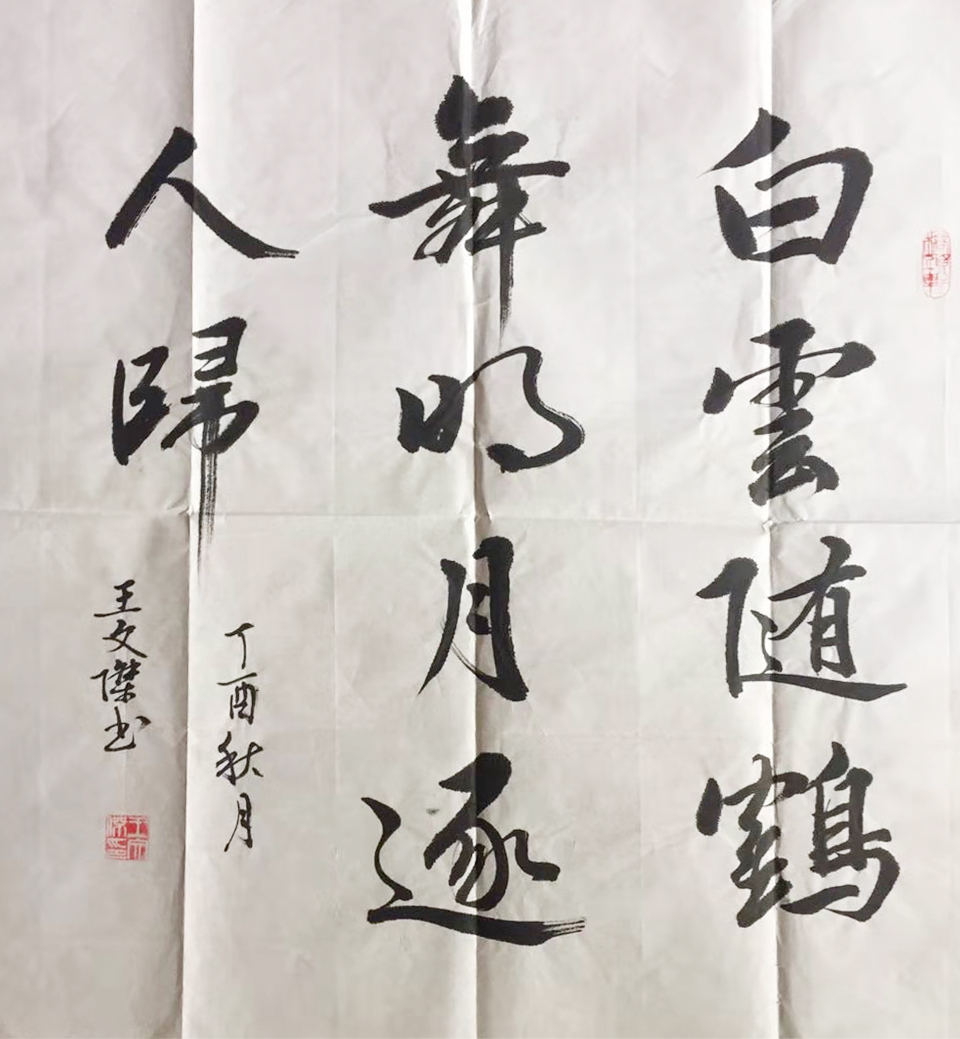 白雲随鶴
舞明月逐
人歸
丁酉秋月
王文傑书